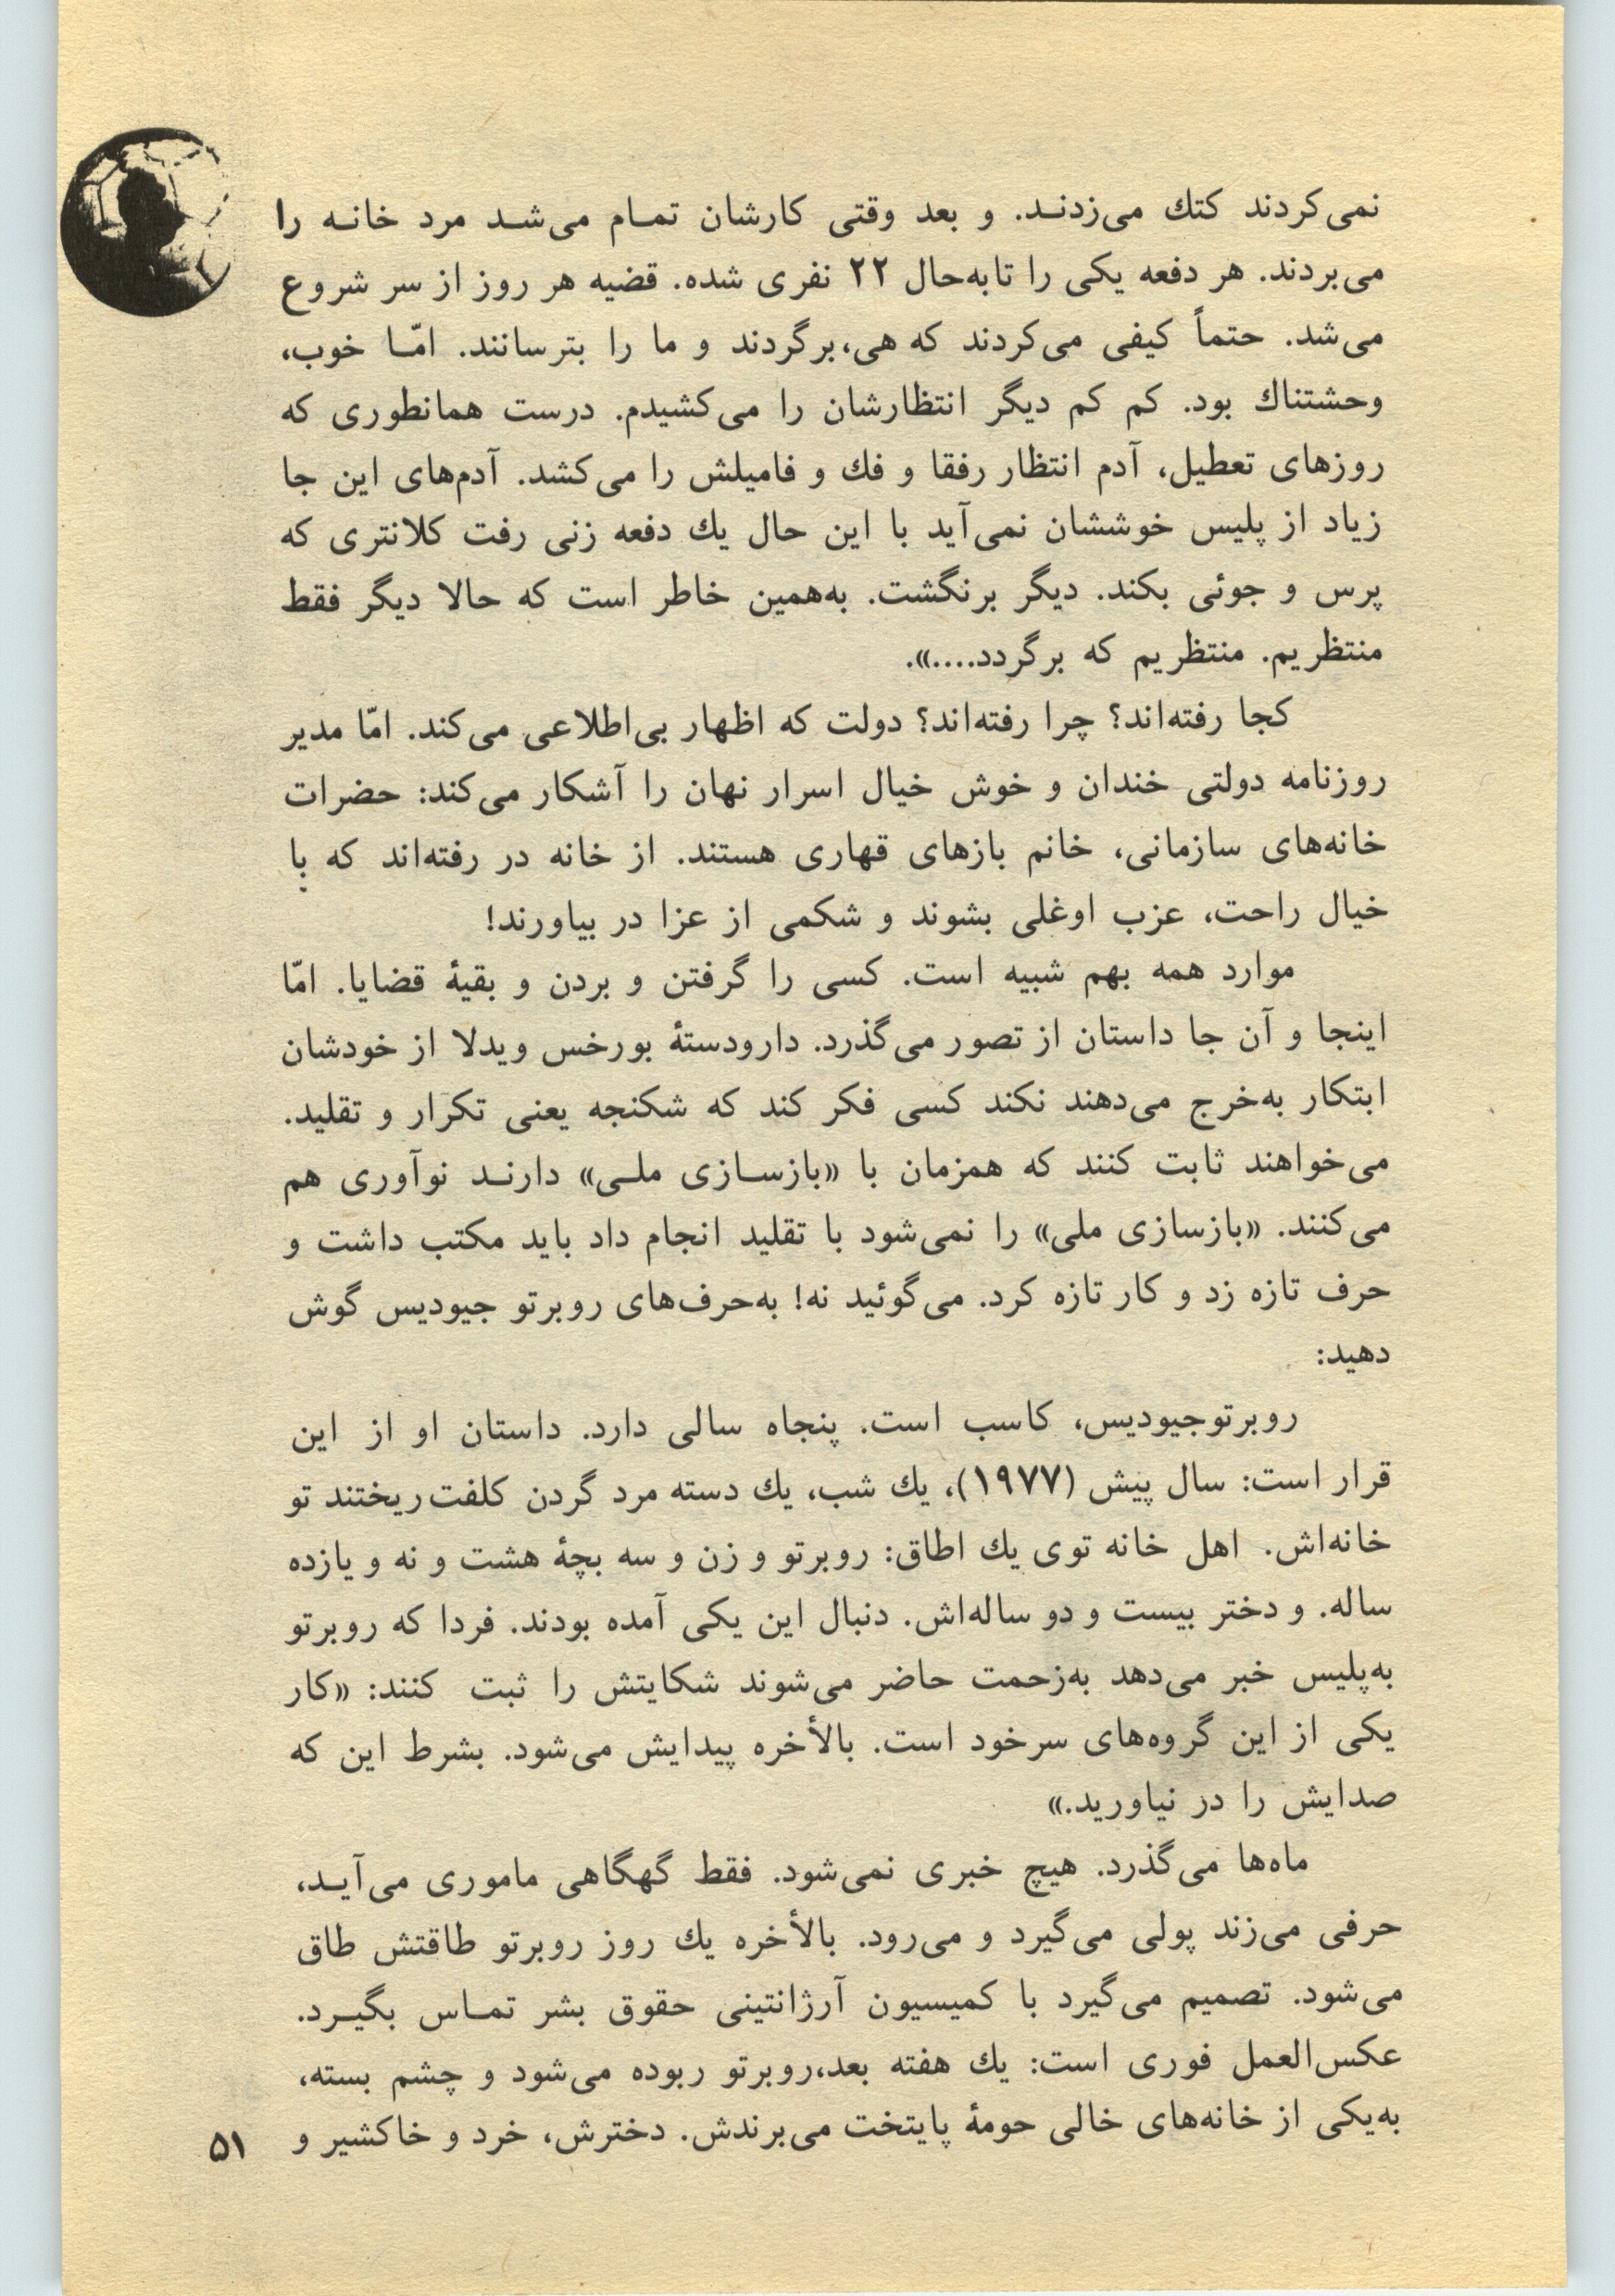 نمی‌کردند کتك می‌زدنـد. و بعد وقتی کارشان تمـام می‌شـد مرد خانـه را
می‌بردند. هر دفعه یکی را تابه‌حال ۲۲ نفری شده. قضیه هر روز از سر شروع
می‌شد. حتماً کیفی می‌کردند که هی،برگردند و ما را بترسانند. امّـا خوب،
وحشتناك بود. کم کم دیگر انتظارشان را می‌کشیدم. درست همانطوری که
روزهای تعطیل، آدم انتظار رفقا و فك و فامیلش را می‌کشد. آدم‌های این جا
زیاد از پلیس خوششان نمی‌آید با این حال یك دفعه زنی رفت کلانتری که
پرس و جوئی بکند. دیگر برنگشت. به‌همین خاطر است که حالا دیگر فقط
منتظریم. منتظریم که برگردد....».
کجا رفته‌اند؟ چرا رفته‌اند؟ دولت که اظهار بی‌اطلاعی می‌کند. امّا مدیر
روزنامه دولتی خندان و خوش خیال اسرار نهان را آشکار می‌کند: حضرات
خانه‌های سازمانی، خانم بازهای قهاری هستند. از خانه در رفته‌اند که با
خیال راحت، عزب اوغلی بشوند و شکمی از عزا در بیاورند!
موارد همه بهم شبیه است. کسی را گرفتن و بردن و بقیهٔ قضایا. امّا
اینجا و آن جا داستان از تصور می‌گذرد. دارودستهٔ بورخس ویدلا از خودشان
ابتکار به‌خرج می‌دهند نکند کسی فکر کند که شکنجه یعنی تکرار و تقلید.
می‌خواهند ثابت کنند که همزمان با «بازسـازی ملـی» دارنـد نوآوری هم
می‌کنند. «بازسازی ملی» را نمی‌شود با تقلید انجام داد باید مکتب داشت و
حرف تازه زد و کار تازه کرد. می‌گوئید نه! به‌حرف‌های روبرتو جیودیس گوش
دهید:
روبرتوجیودیس، کاسب است. پنجاه سالی دارد. داستان او از این
قرار است: سال پیش (۱۹۷۷)، یك شب، یك دسته مرد گردن کلفت‌ریختند تو
خانه‌اش. اهل خانه توی یك اطاق: روبرتو و زن و سه بچهٔ هشت و نه و یازده
ساله. و دختر بیست و دو ساله‌اش. دنبال این یکی آمده بودند. فردا که روبرتو
به‌پلیس خبر می‌دهد به‌زحمت حاضر می‌شوند شکایتش را ثبت کنند: «کار
یکی از این گروه‌های سرخود است. بالأخره پیدایش می‌شود. بشرط این که
صدایش را در نیاورید.»
ماه‌ها می‌گذرد. هیچ خبری نمی‌شود. فقط گهگاهی ماموری می‌آیـد،
حرفی می‌زند پولی می‌گیرد و می‌رود. بالأخره یك روز روبرتو طاقتش طاق
می‌شود. تصمیم می‌گیرد با کمیسیون آرژانتینی حقوق بشر تمـاس بگیـرد.
عکس‌العمل فوری است: یك هفته بعد،روبرتو ربوده می‌شود و چشم بسته،
به‌یکی از خانه‌های خالی حومهٔ پایتخت می‌برندش. دخترش، خرد و خاکشیر و
۵۱